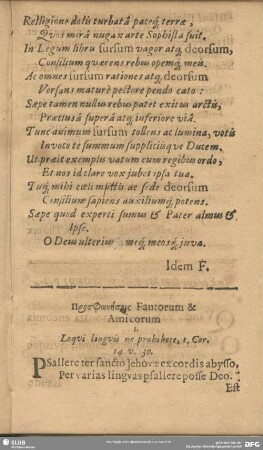 Relligione dolis turbatâ paceq́; terræ,
Quos mirâ nugax arte Sophista suit.
In Legum libru sursum vagor atq; deorsum,
Consilium quærens rebus opemq́; meis.
Ac omnes sursum rationes atq; deorsum
Versans maturè pectore pendo cato:
Sæpe tamen nullus rebus patet exitus arctis,
Præclusâ superâ atq; inferiore viâ.
Tunc animum sursum tollens ac lumina, votis
Invoco te summum suppliciusque Ducem.
Ut præit exemplis vatum cum regibus ordo,
Et nos id clare vox jubet ipsa tua.
Tuq́; mihi cœli mittis ae sede deorsum
Consilium sapiens auxiliumq́; potens.
Sæpe quod experti sumus & Pater almus &
Ipse.
O Deus ulterius meq́; meosq́; juva.
Idem F.
Προσφωνήσης Fantorum &
Amicorum
I.
Loqui linguis ne prohibete, 1, Cor.
14. v. 39.
PSallere ter sancto Jehovæ ex cordis abysso,
Per varias linguas psallere posse Deo.
Est
SLUB
DFG